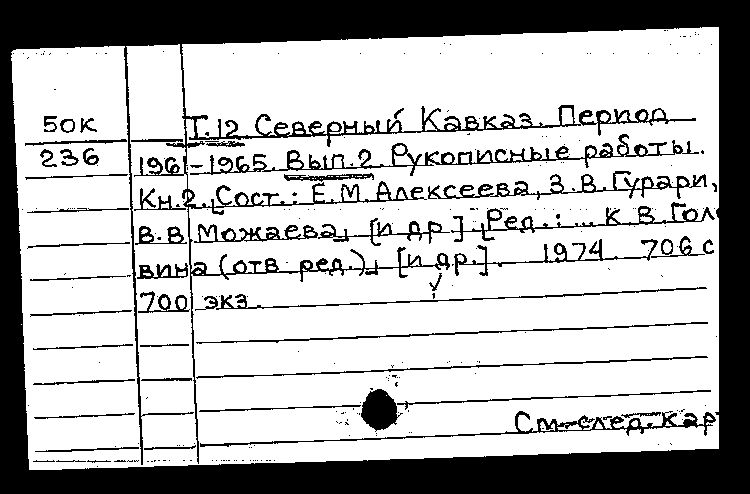 50К Т.12. Северный Кавказ. Период
236 1961-1965. Вып.2. Рукописные работы.
Кн.2. [Сост.: Е.М.Алексеева, З.В.Гурари,
В.В.Можаева] [и др.]. [Ред.: ... К.В.Голо
вина (отв. ред.)] [и др.]. 1974. 706 с
700 экз.
См. след. кар